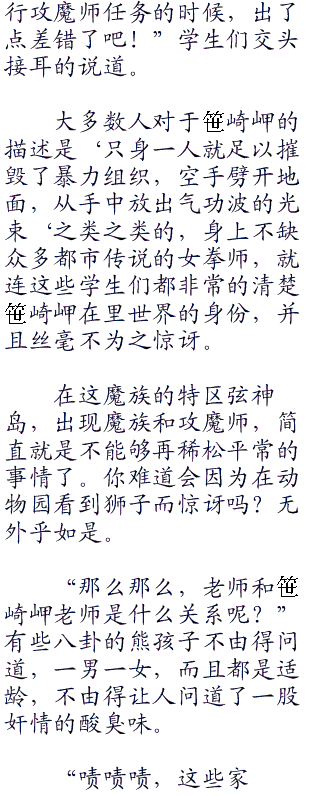 行攻魔师任务的时候，出了
点差错了吧！”学生们交头
接耳的说道。
大多数人对于笹崎岬的
描述是‘只身一人就足以摧
毁了暴力组织，空手劈开地
面，从手中放出气功波的光
束‘之类之类的，身上不缺
众多都市传说的女拳师，就
连这些学生们都非常的清楚
笹崎岬在里世界的身份，并
且丝毫不为之惊讶。
在这魔族的特区弦神
岛，出现魔族和攻魔师，简
直就是不能够再稀松平常的
事情了。你难道会因为在动
物园看到狮子而惊讶吗？无
外乎如是。
“那么那么，老师和笹
崎岬老师是什么关系呢？”
有些八卦的熊孩子不由得问
道，一男一女，而且都是适
龄，不由得让人问道了一股
奸情的酸臭味。
“啧啧啧，这些家